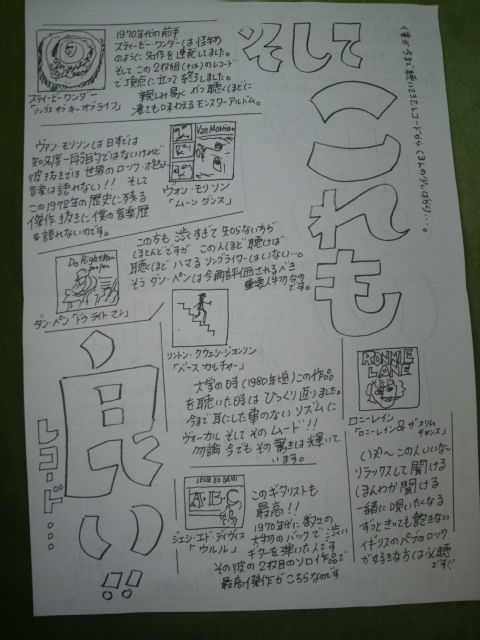 そして
これも
良い!!
レコード…
僕が今まで聴いてきたレコードから ほんの少しばかり…。
1970年代の前半
スティービー・ワンダーは怪物
のように名作を連発してました。
そしてこの2枚組(+α)のレコード
で頂点に立って終了しました。
親しみ易く かつ聴くほどに
凄さも味わえるモンスターアルバム。
スティービー・ワンダー
「ソングス オブ キー オブ ライフ」
ヴァン・モリソンは日本では
彼抜きでは世界のロック
音楽は語れない!! そして
この1970年の歴史に残る
傑作抜きに僕の音楽歴
を語れないのです。
Van Morrison
ヴァン・モリソン
「ムーンダンス」
この方も渋すぎて知らない方が
ほとんどですが この人ほど聴けば
聴くほどハマるソングライターはいない…。
そう ダン・ペンは今再評価されるべき
重要人物なの
です。
Do Right Man
ダン・ペン「ドゥ ライト マン」
リントン・クウェシ・ジョンソン
「ベース カルチャー」
大学の時(1980年頃)この作品
を聴いた時は びっくり返りました。
今まで耳にした事のない リズムに
ヴォーカル そして そのムード!!
勿論 今でも その驚きは輝いて
います。
RONNIE
LANE
ロニー・レイン
「ロニー・レイン & ザ スリム
チャンス」
いや〜 この人いいな〜
リラックスして聞ける
しみんわか聞ける
一緒に唄いたくなる
ずっときいても飽きない
イギリスのパブロック
が好きな方は必聴
です!!
JESSE ED DAVIS
A・B・C
ジェシ・エド・デイヴィス
「ウルル」
このギタリストも
最高!!
1970年代に数々の
大物のバックで渋い
ギターを弾いた人です
その彼の2枚目のソロ作品で
最高傑作がこちらなのです